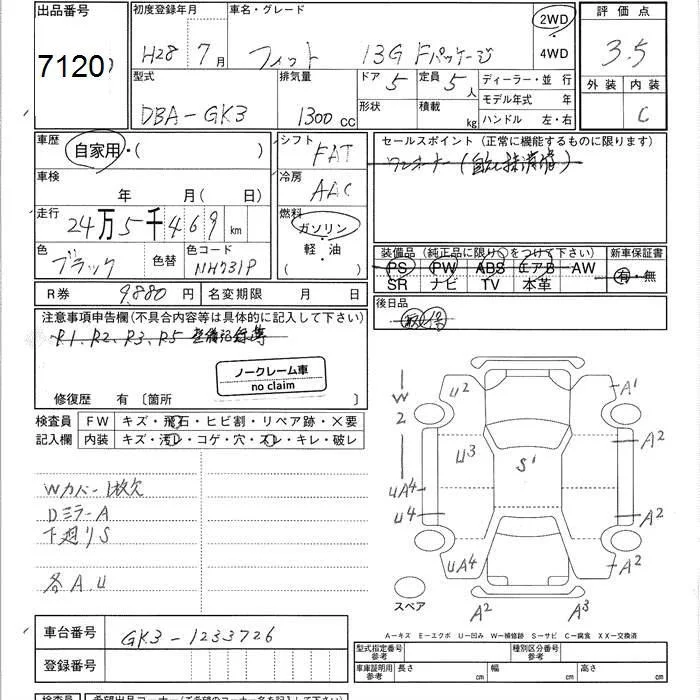 出品番号
7120
初度登録年月
H28年 7月
車名・グレード
フィット 13G Fパッケージ
2WD
4WD
評価点
3.5
外装 内装
C
型式
DBA-GK3
排気量
1300 cc
ドア 5
形状
定員 5人
積載 kg
ディーラー・並行
モデル年式 年
ハンドル 左・右
車歴
自家用・( )
車検
年 月( 日)
走行
24万5千469 km
色
ブラック
色替
色コード
NH731P
シフト
FAT
冷房
AAC
燃料
ガソリン
軽・油
( )
セールスポイント(正常に機能するものに限ります)
ワンオーナー
装備品(純正品に限り○をつけて下さい)
新車保証書
PS PW ABS エアB AW
SR ナビ TV 本革
有・無
R券 9,880円 名変期限 月 日
後日品
注意事項申告欄(不具合内容等は具体的に記入して下さい)
R1、R2、R3、R5 整備記録簿
ノークレーム車
no claim
修復歴 有〔箇所 〕
検査員
記入欄
FW キズ・飛石・ヒビ割・リペア跡・×要
内装 キズ・汚レ・コゲ・穴・スレ・キレ・破レ
Wカバー1枚欠
DミラーA
下廻りS
各A.U
W
2
U2
A1
A2
U3
S1
UA4
U4
A2
UA4
A2
スペア
A2
A3
A－キズ E－エクボ U－凹み W－補修跡 S－サビ C－腐食 XX－交換済
車台番号
GK3-1233726
登録番号
型式指定番号
参考
種別区分番号
参考
車庫証明用
参考
長さ cm 幅 cm 高さ cm
検査員
希望出品コーナー(ご希望のコーナー名を記入して下さい)